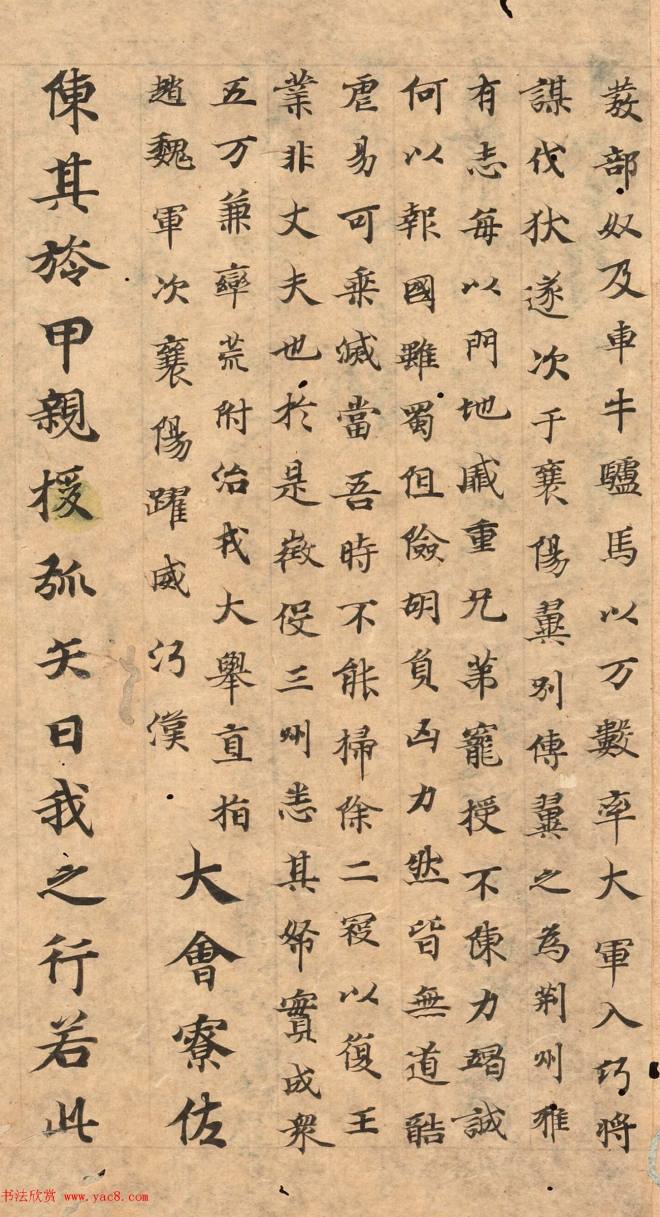 發部奴及車牛驢馬以万數率大軍入沔將
謀伐狄遂次于襄陽翼別傳翼之為荊州雅
有志每以門地威重兄弟寵授不陳力竭誠
何以報國雖蜀但險胡負凶力然皆無道酷
虐易可乘滅當吾時不能掃除二寇以復王
業非丈夫也於是徵役三州悉其帑實成衆
五万兼率荒附治戎大舉直指
趙魏軍次襄陽躍威沔漢
大會寮佐
陳其旍甲親授弧矢曰我之行若此
书法欣赏 www.yac8.com